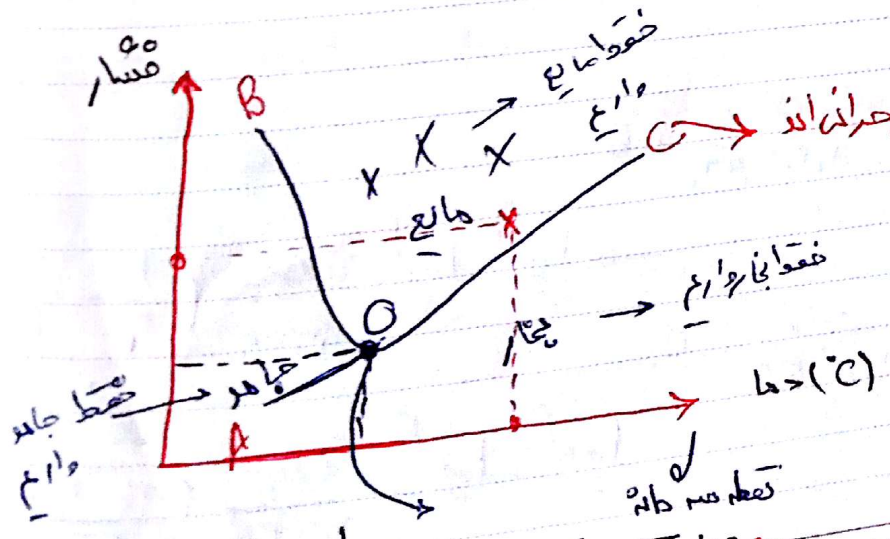 فشار
B
فقط مایع
داریم
C
بحرانی اند
مایع
O
بخار
فقط بخار داریم
جامد
فقط جامد
داریم
A
دما (°C)
نقطه سه گانه